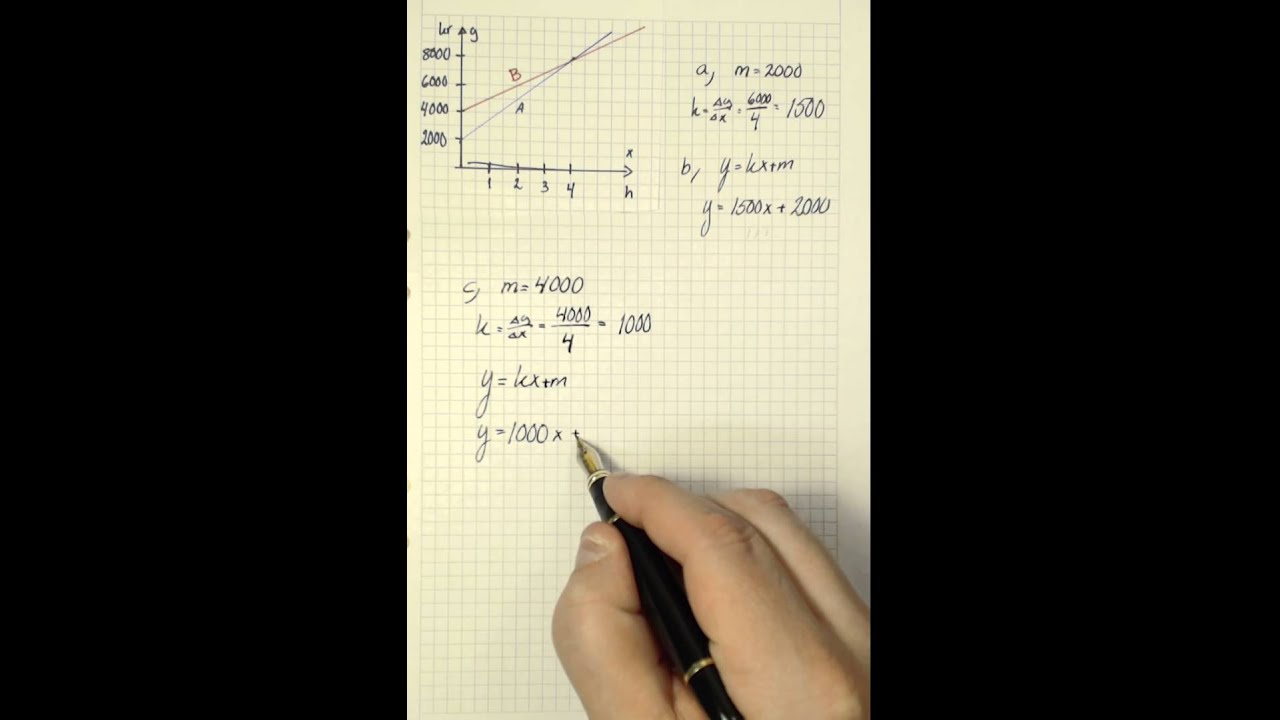 kr y
8000
6000
4000
2000
B
A
x
1 2 3 4 h
a, m=2000
k = Δy/Δx = 6000/4 = 1500
b, y=kx+m
y = 1500x + 2000
c, m=4000
k = Δy/Δx = 4000/4 = 1000
y = kx+m
y = 1000x +